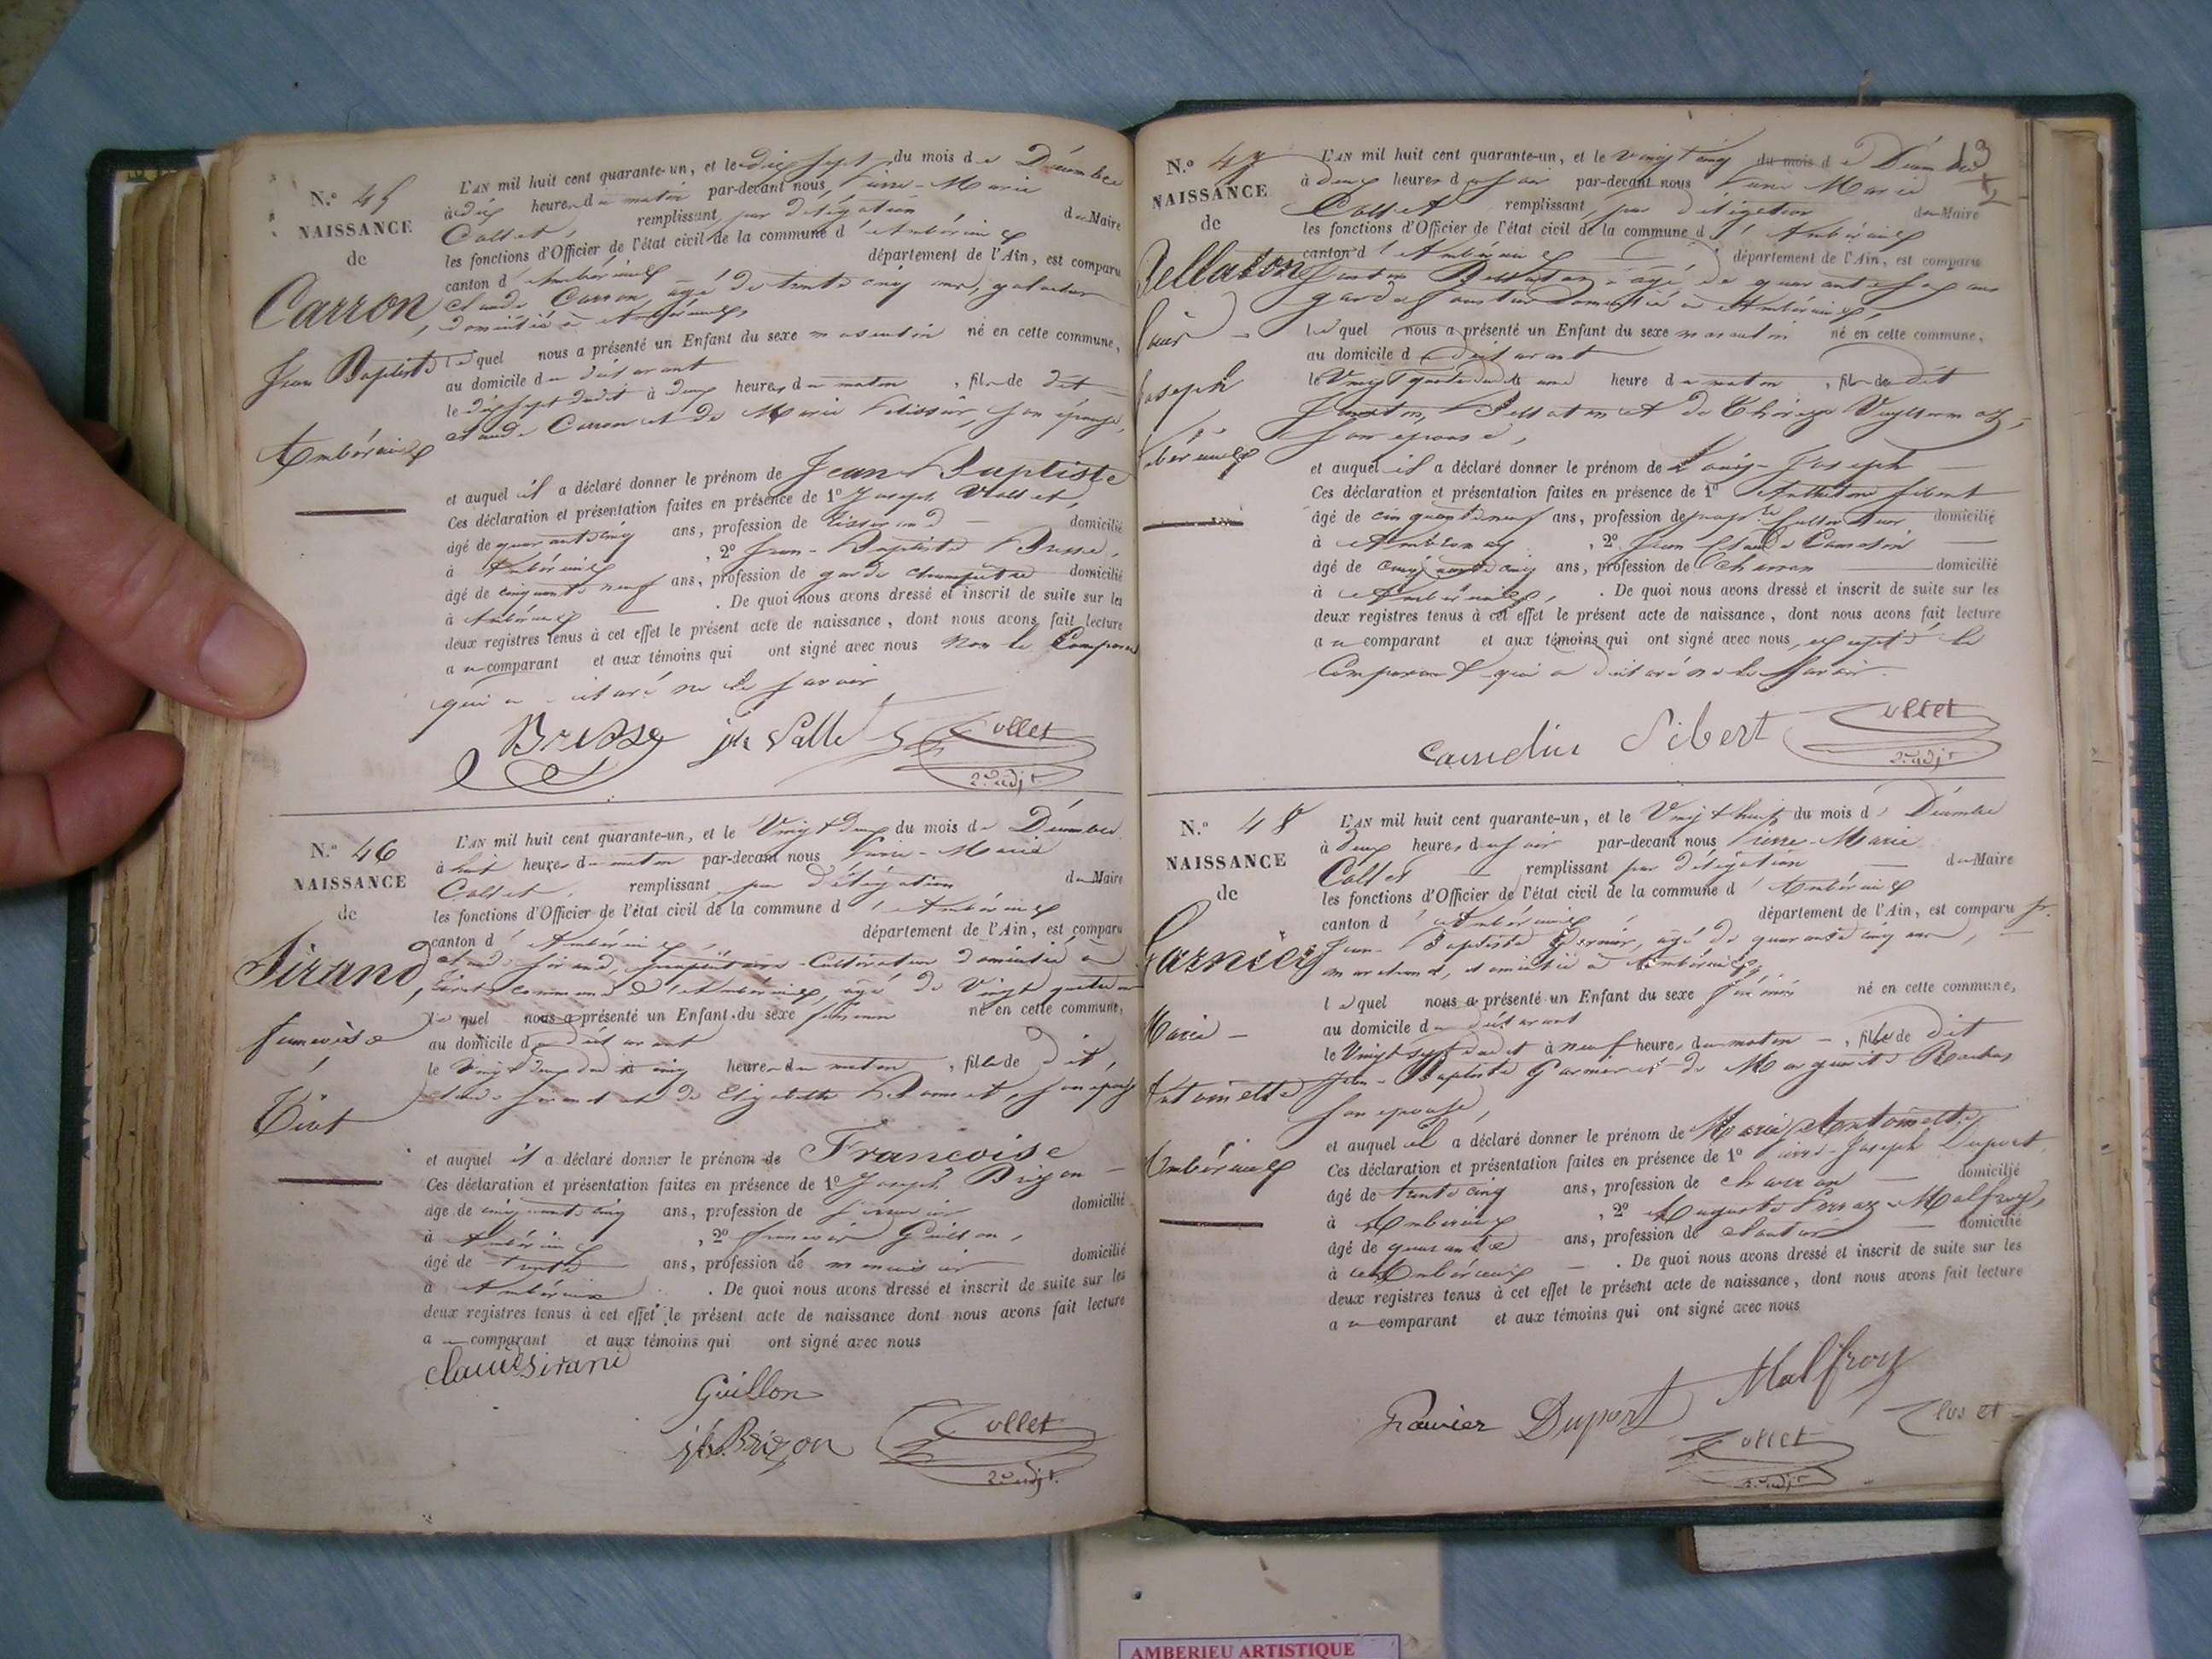 N.° 45
NAISSANCE
de
Carron
Jean Baptiste
Ambérieux
L'AN mil huit cent quarante-un, et le dix sept du mois de Décembre
à dix heures du matin par-devant nous, Pierre-Marie
Collet, remplissant par délégation du Maire
les fonctions d'Officier de l'état civil de la commune d'Ambérieux
canton d'Ambérieux département de l'Ain, est comparu
Claude Carron, âgé de trente cinq ans, galocher
domicilié à Ambérieux,
lequel nous a présenté un Enfant du sexe masculin né en cette commune,
au domicile du déclarant
le dix sept dudit à deux heures du matin, fils de dit
Claude Carron et de Marie son épouse,
et auquel il a déclaré donner le prénom de Jean Baptiste
Ces déclaration et présentation faites en présence de 1° Joseph Vallet,
âgé de quarante cinq ans, profession de Tisserand domicilié
à Ambérieux, 2° Jean-Baptiste Brisse,
âgé de cinquante neuf ans, profession de garde champêtre domicilié
à Ambérieux. De quoi nous avons dressé et inscrit de suite sur les
deux registres tenus à cet effet le présent acte de naissance, dont nous avons fait lecture
au comparant et aux témoins qui ont signé avec nous non le Comparant
qui a déclaré ne le savoir
Brisse jh Vallet Collet
2e adjt
N.° 46
NAISSANCE
de
Sirand
françoise
Tiret
L'AN mil huit cent quarante-un, et le Vingt deux du mois de Décembre
à huit heures du matin par-devant nous Pierre-Marie
Collet, remplissant par délégation du Maire
les fonctions d'Officier de l'état civil de la commune d'Ambérieux
canton d'Ambérieux département de l'Ain, est comparu
Claude Sirand, propriétaire-Cultivateur domicilié à
Tiret commune d'Ambérieux, âgé de Vingt quatre ans
lequel nous a présenté un Enfant du sexe féminin né en cette commune,
au domicile du déclarant
le Vingt deux dudit à cinq heures du matin, fille de dit,
Claude Sirand et de Elizabette Bonnet, son épouse
et auquel il a déclaré donner le prénom de Francoise
Ces déclaration et présentation faites en présence de 1° Joseph Brizon
âgé de cinquante cinq ans, profession de serrurier domicilié
à Ambérieux, 2° françois Guillon,
âgé de trente ans, profession de menuisier domicilié
à Ambérieux. De quoi nous avons dressé et inscrit de suite sur les
deux registres tenus à cet effet le présent acte de naissance dont nous avons fait lecture
au comparant et aux témoins qui ont signé avec nous
Claude Sirand
Guillon
jh Brizon Collet
2e adjt.
13
N.° 47
NAISSANCE
de
Pellaton
Louis
Joseph
Ambérieux
L'AN mil huit cent quarante-un, et le vingt cinq du mois de Décembre
à deux heures du soir par-devant nous Pierre Marie
Collet remplissant, par délégation du Maire
les fonctions d'Officier de l'état civil de la commune d'Ambérieux
canton d'Ambérieux département de l'Ain, est comparu
Pellaton âgé de quarante six ans
garde forestier domicilié à Ambérieux,
lequel nous a présenté un Enfant du sexe masculin né en cette commune,
au domicile du déclarant
le Vingt quatre dudit à une heure du matin, fils de dit
Pellaton et de Thérèze
son épouse,
et auquel il a déclaré donner le prénom de Louis-Joseph
Ces déclaration et présentation faites en présence de 1° Anthelme Sibert
âgé de cinquante neuf ans, profession de prop.re Cultivateur domicilié
à Ambérieux, 2° Jean Claude Caundin
âgé de cinquante cinq ans, profession de Charron domicilié
à Ambérieux,. De quoi nous avons dressé et inscrit de suite sur les
deux registres tenus à cet effet le présent acte de naissance, dont nous avons fait lecture
au comparant et aux témoins qui ont signé avec nous, excepté le
Comparant qui a déclaré ne le savoir.
Caundin Sibert Collet
2e adjt
N.° 48
NAISSANCE
de
Garnier
Marie
Antoinette
Ambérieux
L'AN mil huit cent quarante-un, et le Vingt huit du mois de Décembre
à deux heures du soir par-devant nous Pierre-Marie
Collet remplissant par délégation du Maire
les fonctions d'Officier de l'état civil de la commune d'Ambérieux
canton d'Ambérieux département de l'Ain, est comparu
Jean-Baptiste Garnier, âgé de quarante cinq ans,
marchand, domicilié à Ambérieux,
lequel nous a présenté un Enfant du sexe féminin né en cette commune,
au domicile du déclarant
le Vingt sept dudit à neuf heures du matin, fille de dit
Jean-Baptiste Garnier et de Marguerite
son épouse,
et auquel il a déclaré donner le prénom de Marie Antoinette
Ces déclaration et présentation faites en présence de 1° Pierre-Joseph Duport
âgé de trente cinq ans, profession de charron domicilié
à Ambérieux, 2° Auguste Malfroy,
âgé de quarante ans, profession de domicilié
à Ambérieux. De quoi nous avons dressé et inscrit de suite sur les
deux registres tenus à cet effet le présent acte de naissance, dont nous avons fait lecture
au comparant et aux témoins qui ont signé avec nous
Duport Malfroy
Collet
2e adjt
Clos et
AMBERIEU ARTISTIQUE